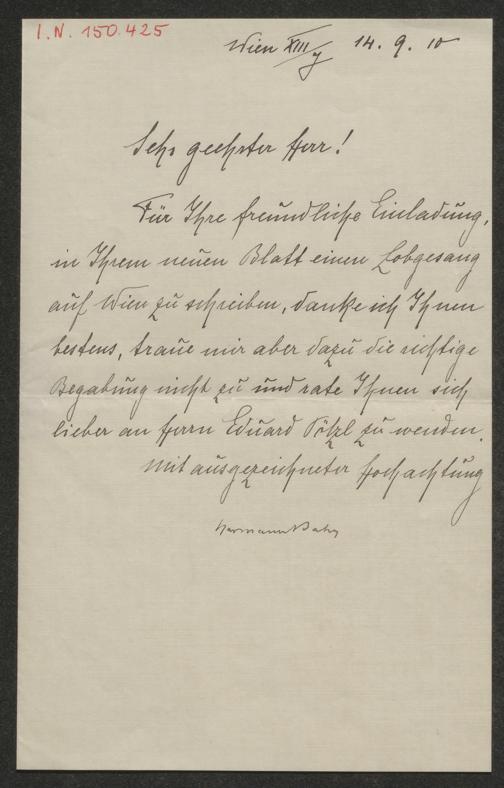 I.N. 150.425
Wien XIII/7 14. 9. 10
Sehr geehrter Herr!
Für Ihre freundliche Einladung,
in Ihrem neuen Blatt einen Lobgesang
auf Wien zu schreiben, danke ich Ihnen
bestens, traue mir aber dazu die richtige
Begabung nicht zu und rate Ihnen sich
lieber an Herrn Eduard Pötzl zu wenden.
Mit ausgezeichneter Hochachtung
Hermann Bahr